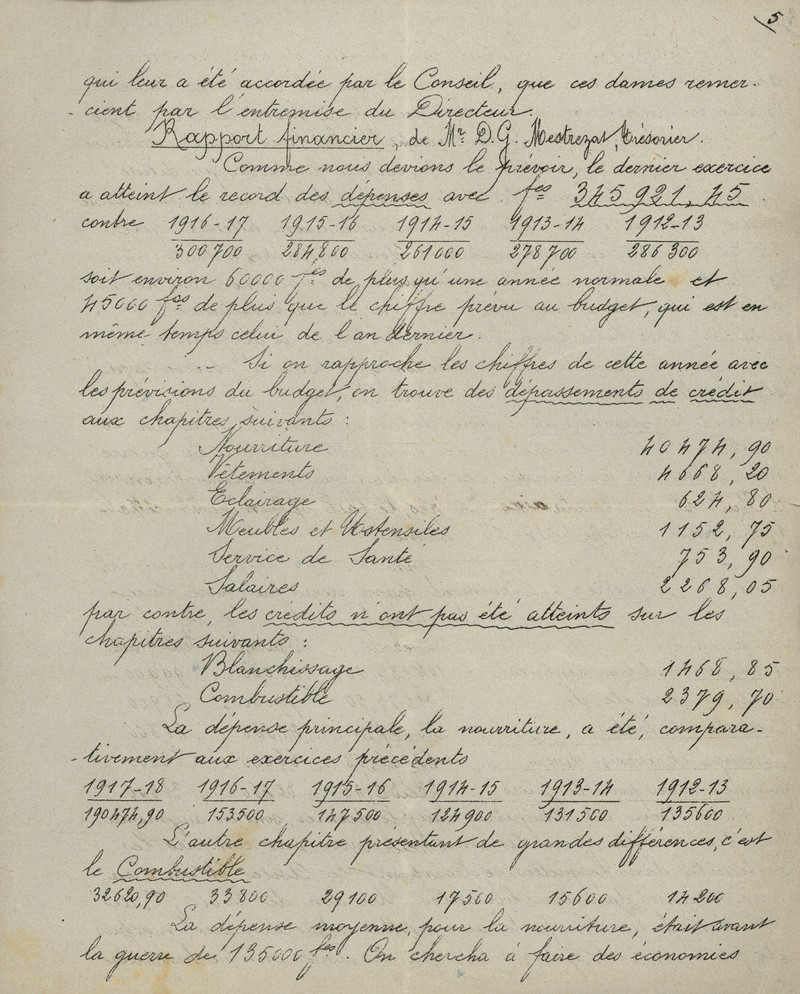 5
qui leur a été accordée par le Conseil, que ces dames remer-
-cient par l'entremise du Directeur.
Rapport financier, de Mr D.G. Mestrezat, Trésorier.
Comme nous devions le prévoir, le dernier exercice
a atteint le record des dépenses avec fcs 345921,45
contre 1916-17 1915-16 1914-15 1913-14 1912-13
300700 284800 261000 278700 286300
soit environ 60000 fcs de plus qu'une année normale et
45000 fcs de plus que le chiffre prévu au budget, qui est en
même temps celui de l'an dernier.
Si on rapproche les chiffres de cette année avec
les prévisions du budget, on trouve des dépassements de crédit
aux chapitres suivants :
Nourriture 40474,90
Vêtements 4668,20
Eclairage 624,80
Meubles et Ustensiles 1152,75
Service de Santé 753,90
Salaires 2268,05
par contre, les crédits n'ont pas été atteints sur les
chapitres suivants :
Blanchissage 1468,85
Combustible 2379,70
La dépense principale, la nourriture, a été, compara-
-tivement aux exercices précédents
1917-18 1916-17 1915-16 1914-15 1913-14 1912-13
190474,90 153500 147500 124900 131500 135600
L'autre chapitre présentant de grandes différences, c'est
le Combustible
32620,90 33800 29100 17500 15600 14200
La dépense moyenne, pour la nourriture, était avant
la guerre de 135000 fcs. On chercha à faire des économies